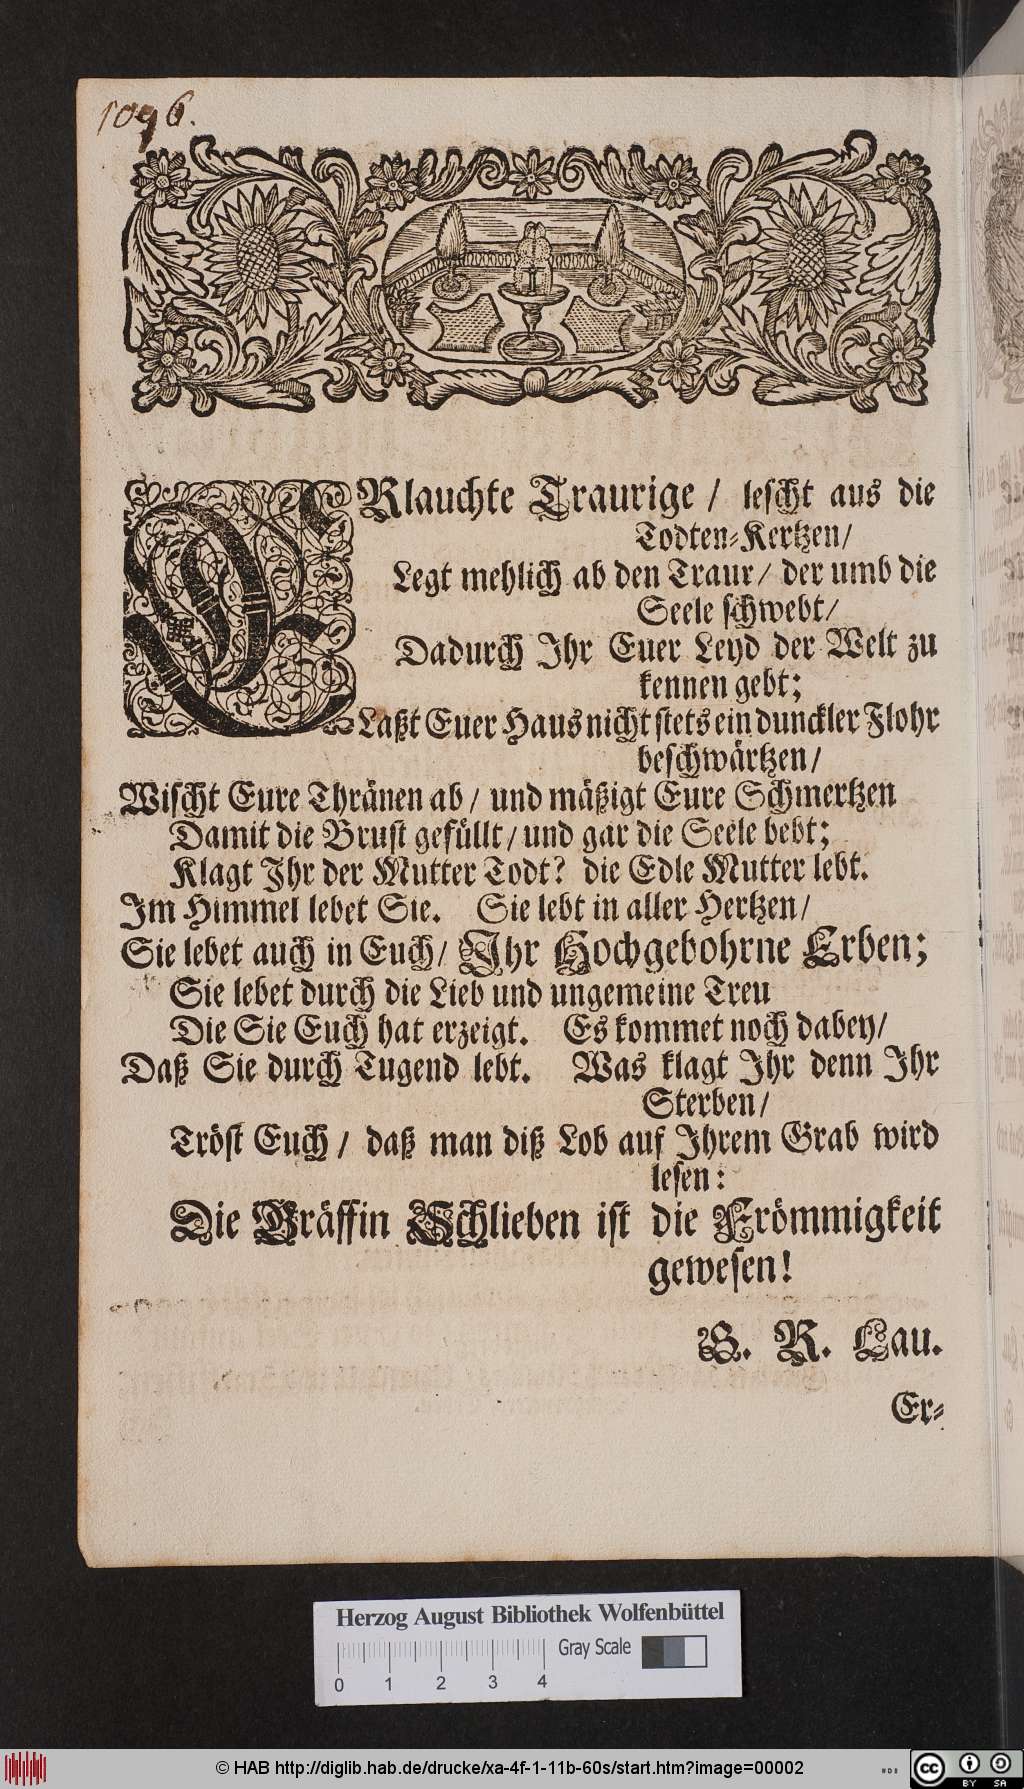 1096.
ERlauchte Traurige / lescht aus die
Todten-Kertzen/
Legt mehlich ab den Traur / der umb die
Seele schwebt/
Dadurch Ihr Euer Leyd der Welt zu
kennen gebt;
Laßt Euer Haus nicht stets ein dunckler Flohr
beschwärtzen/
Wischt Eure Thränen ab / und mäßigt Eure Schmertzen
Damit die Brust gefüllt / und gar die Seele bebt;
Klagt Ihr der Mutter Todt? die Edle Mutter lebt.
Im Himmel lebet Sie. Sie lebt in aller Hertzen/
Sie lebet auch in Euch/ Ihr Hochgebohrne Erben;
Sie lebet durch die Lieb und ungemeine Treu
Die Sie Euch hat erzeigt. Es kommet noch dabey/
Daß Sie durch Tugend lebt. Was klagt Ihr denn Ihr
Sterben/
Tröst Euch / daß man diß Lob auf Ihrem Grab wird
lesen:
Die Gräffin Schlieben ist die Frömmigkeit
gewesen!
S. R. Lau.
Er-
Herzog August Bibliothek Wolfenbüttel
Gray Scale
0 1 2 3 4
© HAB http://diglib.hab.de/drucke/xa-4f-1-11b-60s/start.htm?image=00002
cc BY SA